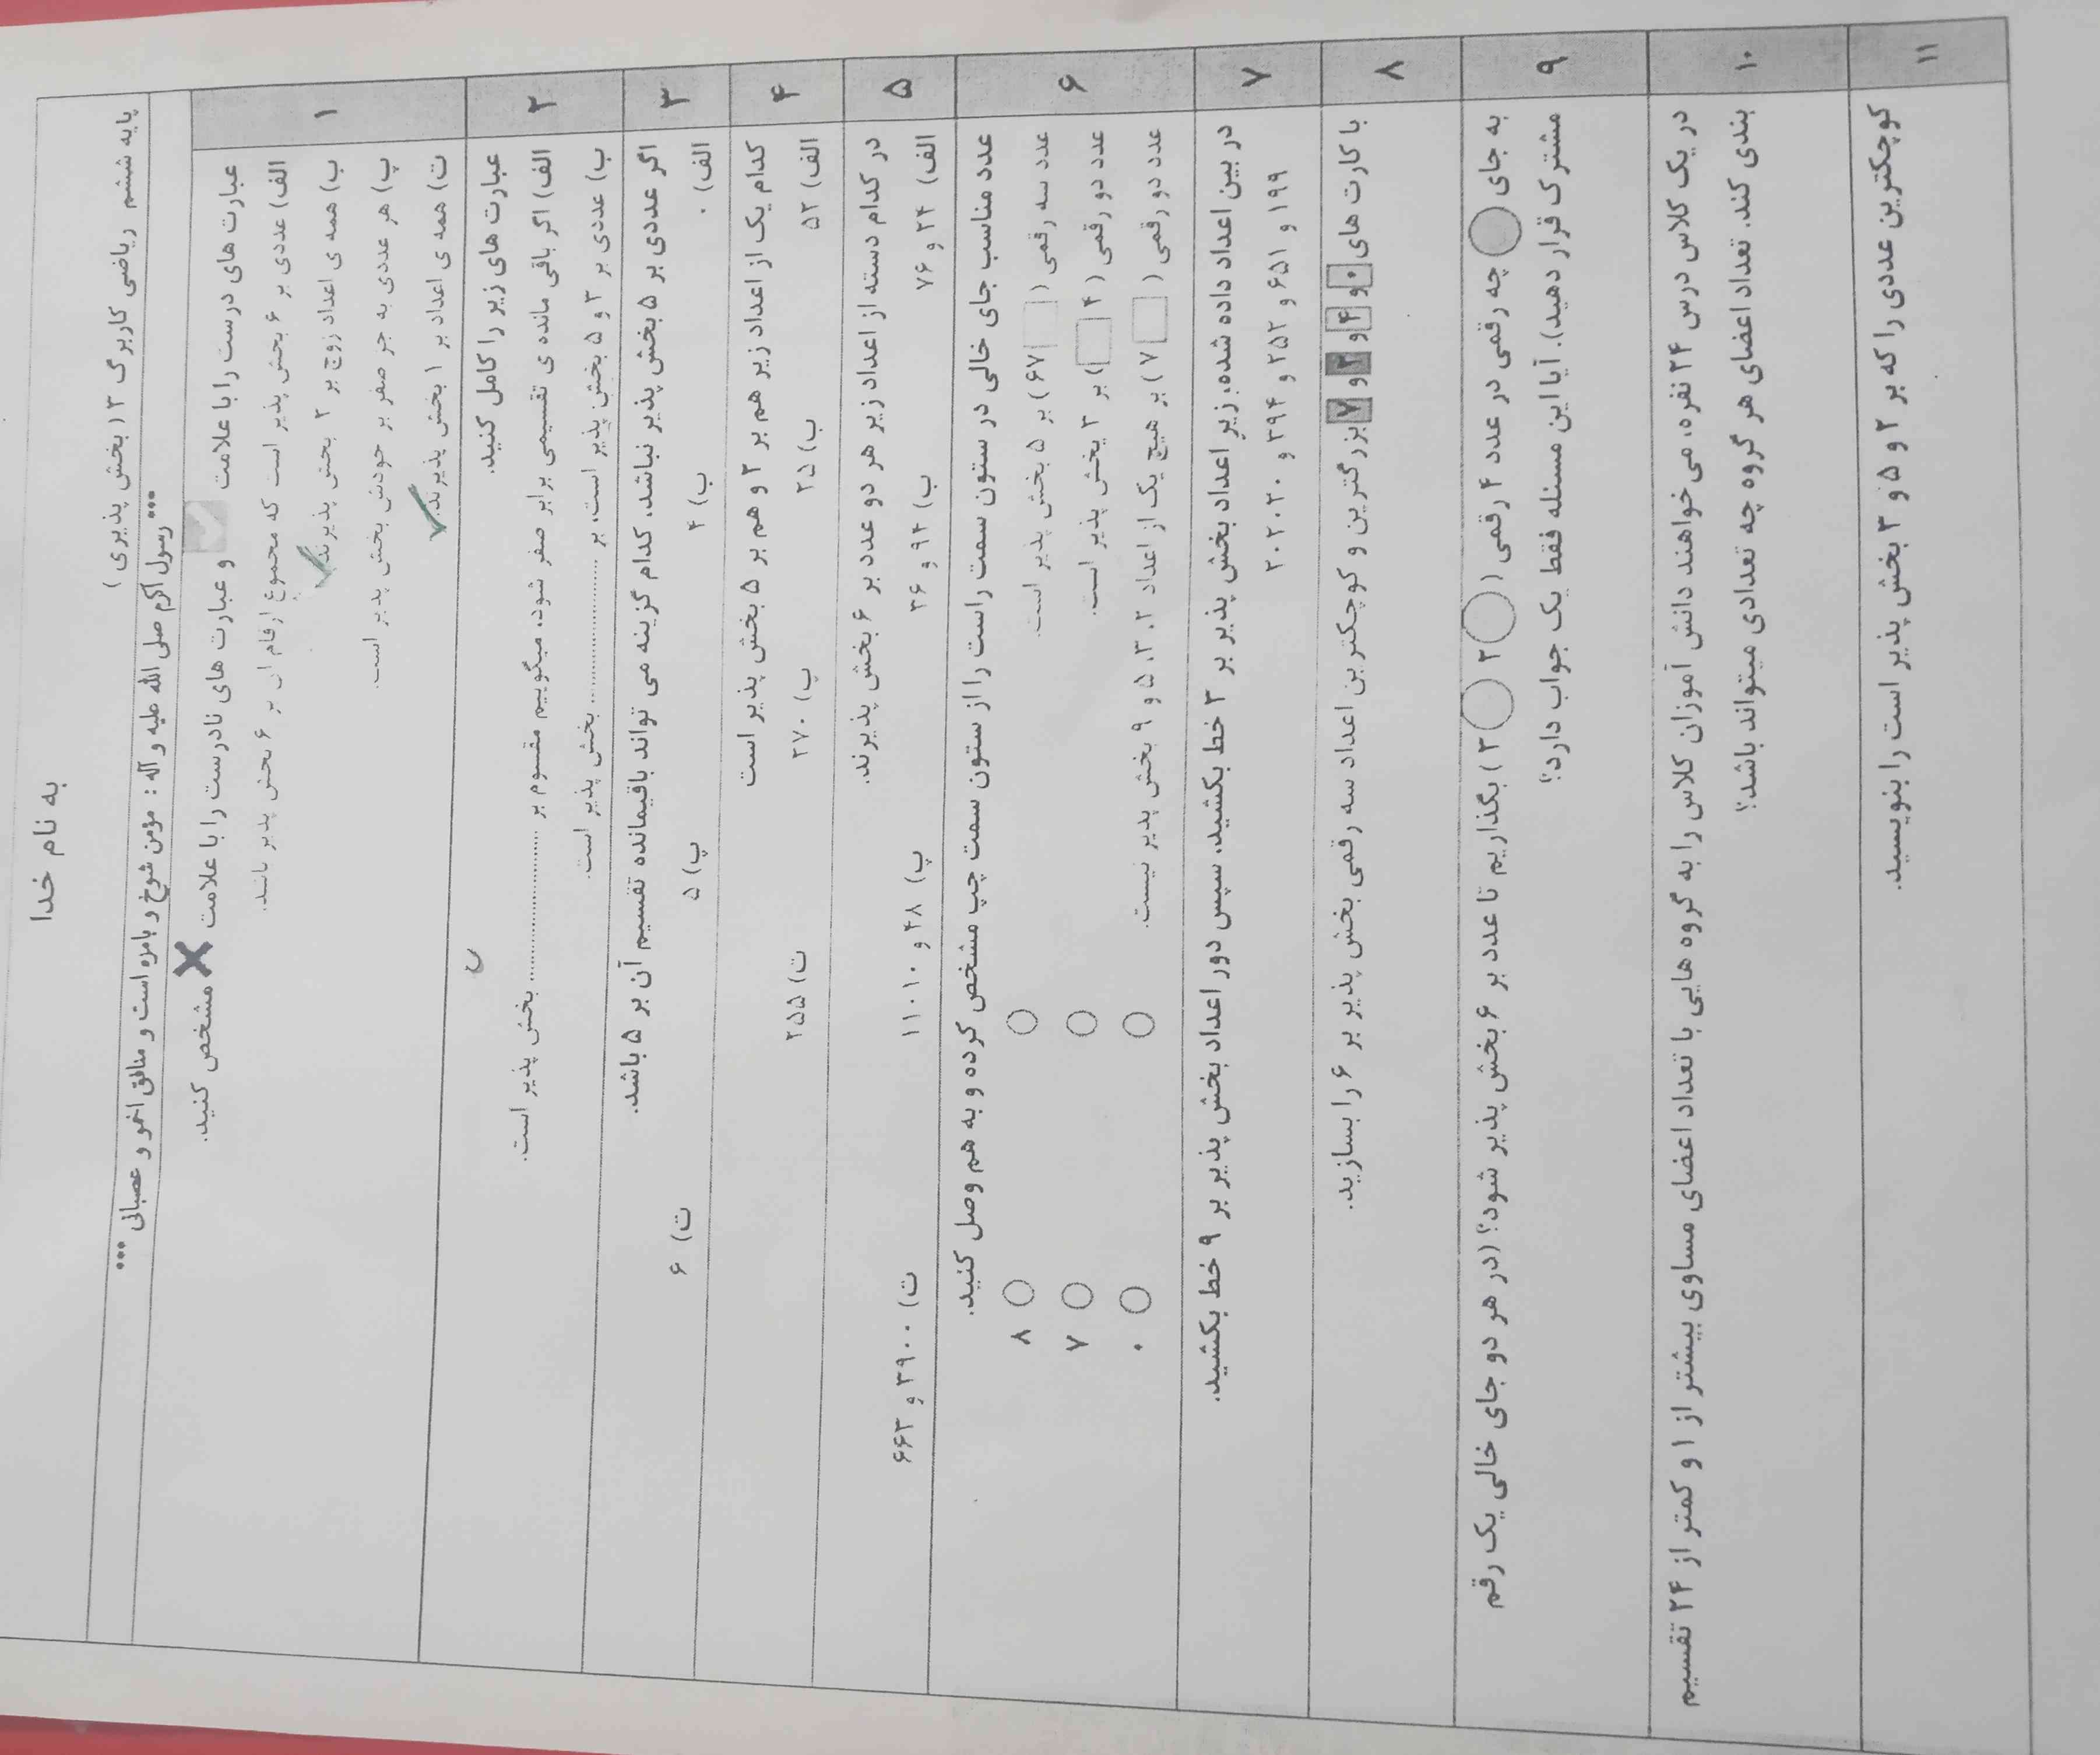 به نام خدا
پایه ششم ریاضی کاربرگ ۳ ( بخش پذیری )
*** رسول اکرم صلی الله علیه و آله : مؤمن شوخ و بامزه است و منافق اخمو و عصبانی ***
۱
عبارت های درست را با علامت و عبارت های نادرست را با علامت ✗ مشخص کنید.
الف) عددی بر ۶ بخش پذیر است که مجموع ارقام آن بر ۶ بخش پذیر باشد.
ب) همه ی اعداد زوج بر ۲ بخش پذیرند. ✓
پ) هر عددی به جز صفر بر خودش بخش پذیر است.
ت) همه ی اعداد بر ۱ بخش پذیرند. ✓
۲
عبارت های زیر را کامل کنید.
الف) اگر باقی مانده ی تقسیمی برابر صفر شود، میگوییم مقسوم بر ............ بخش پذیر است.
ب) عددی بر ۳ و ۵ بخش پذیر است، بر ............ بخش پذیر است.
۳
اگر عددی بر ۵ بخش پذیر نباشد، کدام گزینه می تواند باقیمانده تقسیم آن بر ۵ باشد.
الف) ۰ ب) ۴ پ) ۵ ت) ۶
۴
کدام یک از اعداد زیر هم بر ۲ و هم بر ۵ بخش پذیر است
الف) ۵۲ ب) ۲۵ پ) ۲۷۰ ت) ۲۵۵
۵
در کدام دسته از اعداد زیر هر دو عدد بر ۶ بخش پذیرند.
الف) ۲۴ و ۷۶ ب) ۹۴ و ۳۶ پ) ۴۸ و ۱۱۰۱۰ ت) ۳۹۰۰ و ۶۶۳
۶
عدد مناسب جای خالی در ستون سمت راست را از ستون سمت چپ مشخص کرده و به هم وصل کنید.
عدد سه رقمی ( □ ۶۷) بر ۵ بخش پذیر است. ○ ○ ۸
عدد دو رقمی ( ۴ □ ) بر ۳ بخش پذیر است. ○ ○ ۷
عدد دو رقمی ( □ ۷ ) بر هیچ یک از اعداد ۲، ۳، ۵ و ۹ بخش پذیر نیست. ○ ○ ۰
۷
در بین اعداد داده شده، زیر اعداد بخش پذیر بر ۳ خط بکشید، سپس دور اعداد بخش پذیر بر ۹ خط بکشید.
۱۹۹ و ۶۵۱ و ۲۵۲ و ۳۹۴ و ۲۰۲۰۳۰
۸
با کارت های ۰ و ۴ و ۲ و ۷ بزرگترین و کوچکترین اعداد سه رقمی بخش پذیر بر ۶ را بسازید.
۹
به جای ○ چه رقمی در عدد ۴ رقمی ( ○ ۲ ○ ۳ ) بگذاریم تا عدد بر ۶ بخش پذیر شود؟ (در هر دو جای خالی یک رقم
مشترک قرار دهید). آیا این مسئله فقط یک جواب دارد؟
۱۰
در یک کلاس درس ۲۴ نفره، می خواهند دانش آموزان کلاس را به گروه هایی با تعداد اعضای مساوی بیشتر از ۱ و کمتر از ۲۴ تقسیم
بندی کند. تعداد اعضای هر گروه چه تعدادی میتواند باشد؟
۱۱
کوچکترین عددی را که بر ۲ و ۵ و ۳ بخش پذیر است را بنویسید.